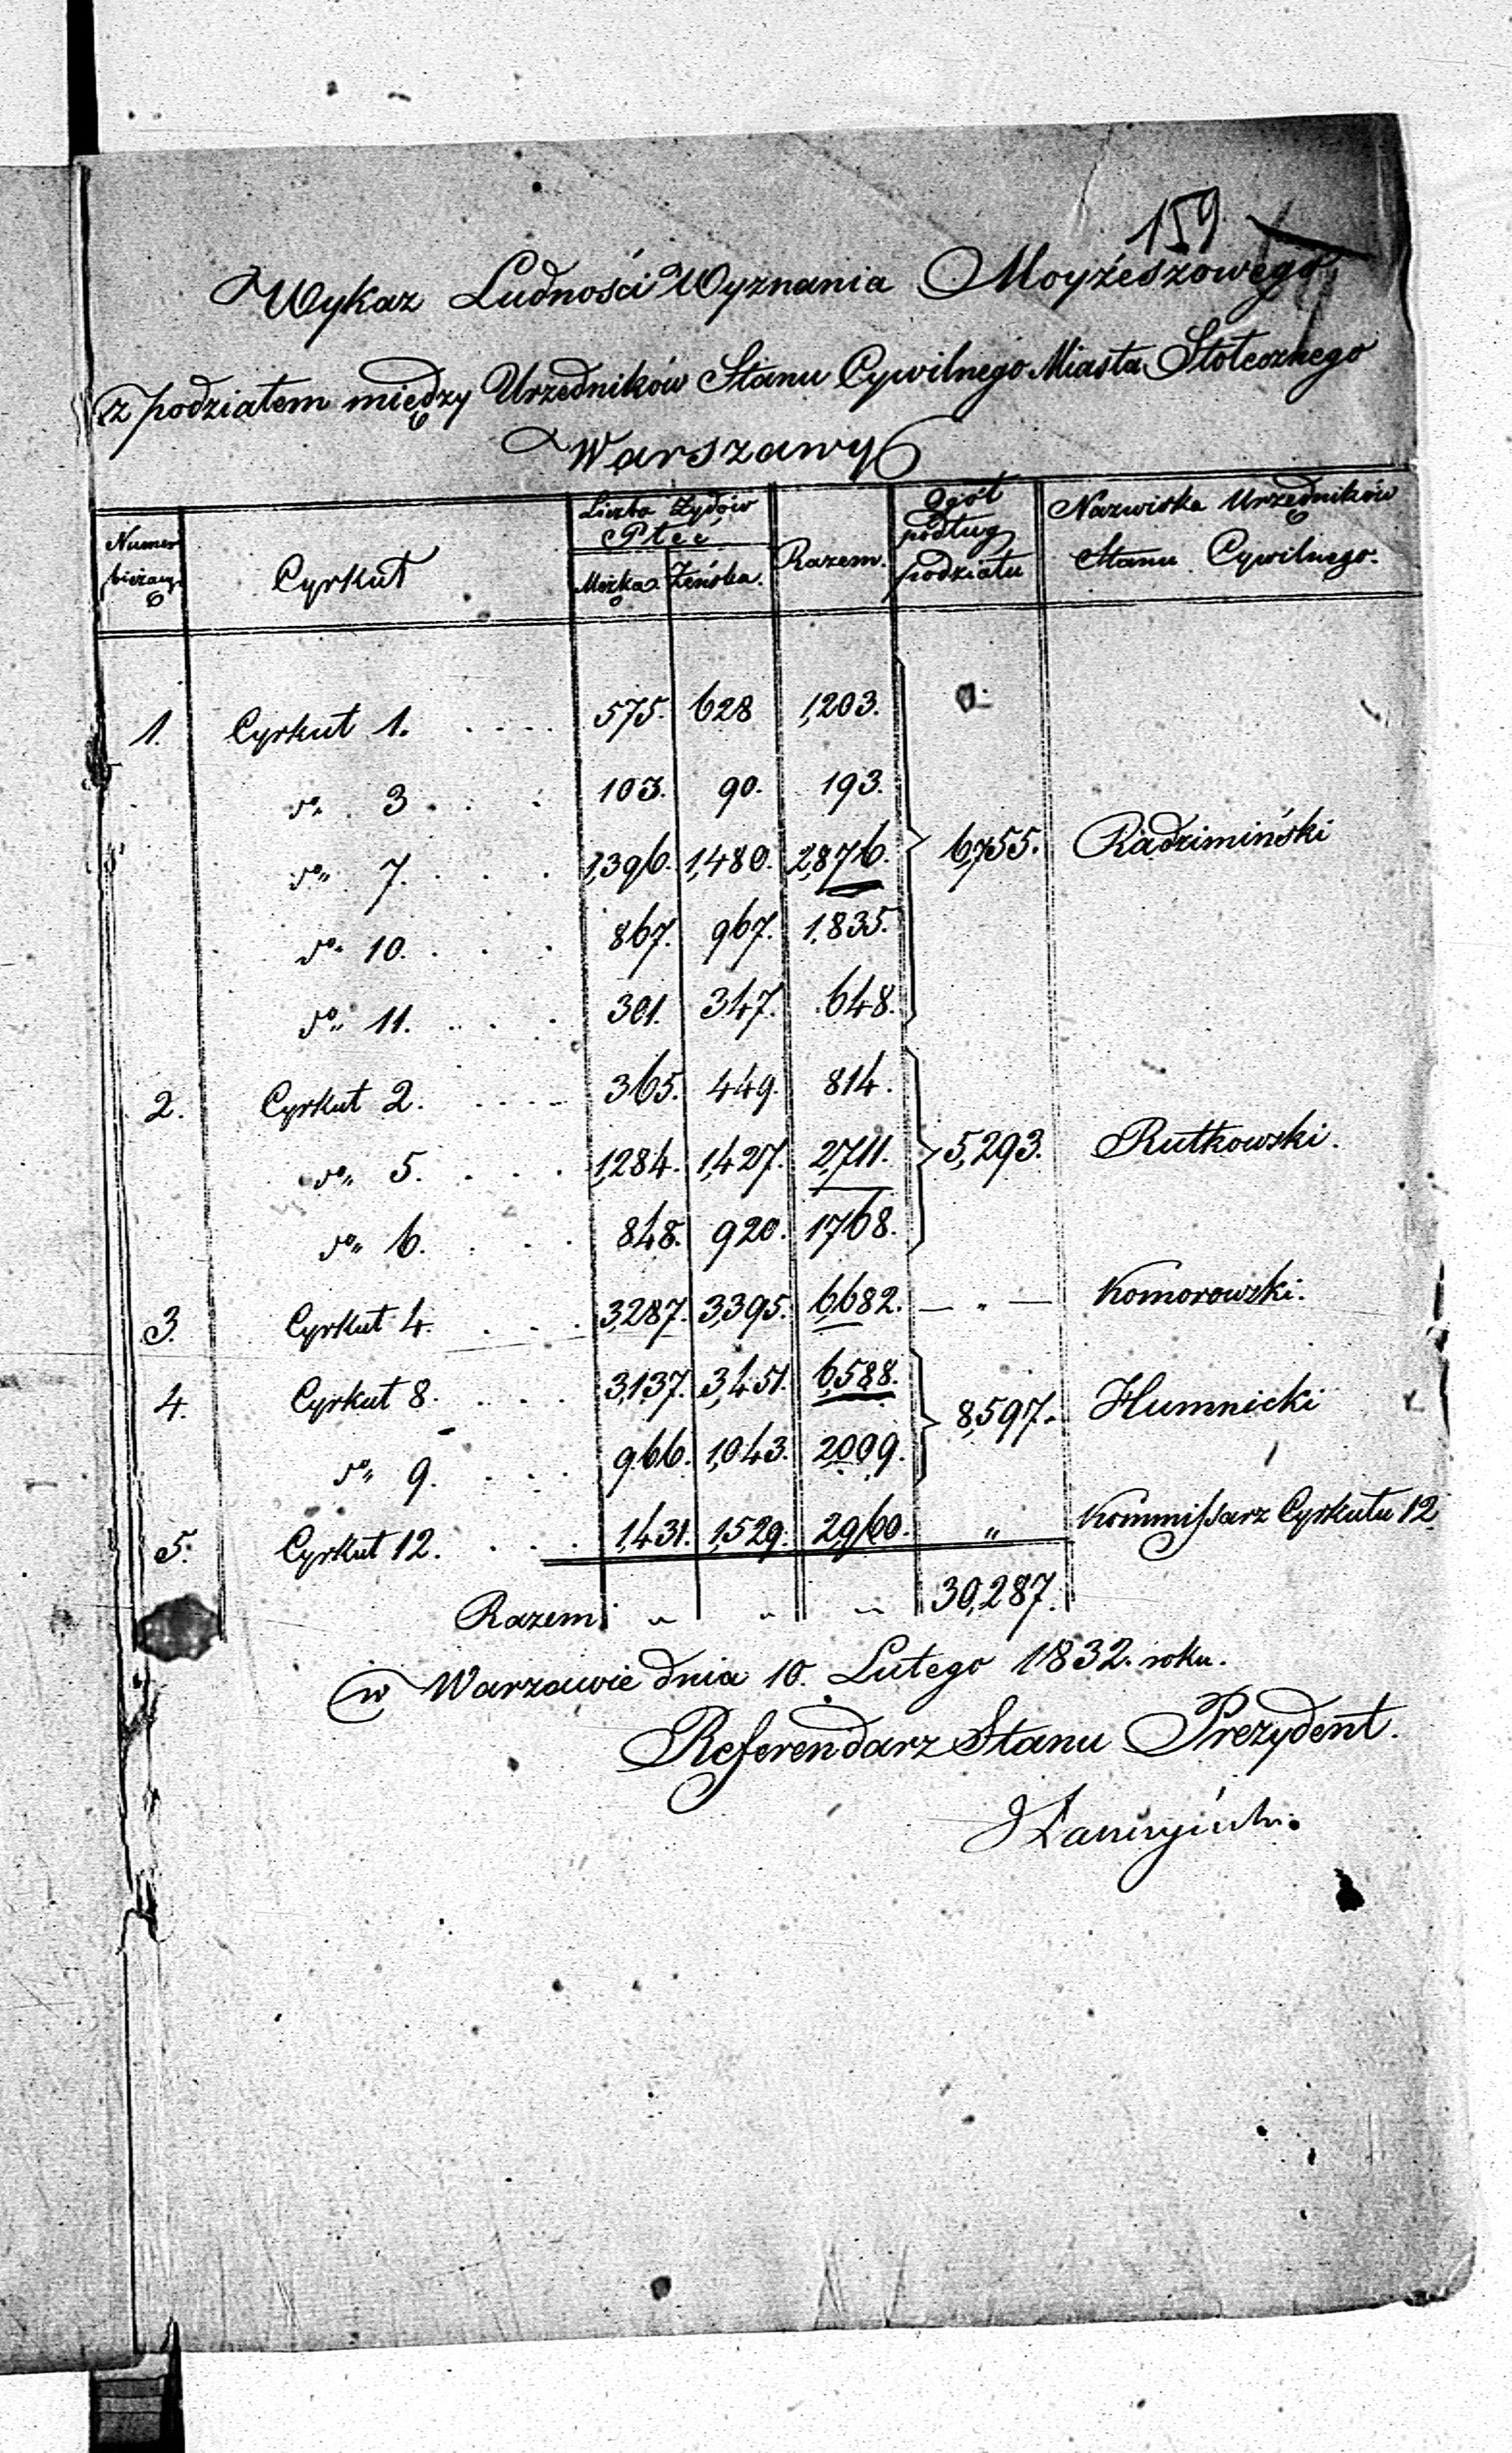 159
Wykaz Ludności Wyznania Moyżeszowego
z podziałem między Urzędników Stanu Cywilnego Miasta Stołecznego
Warszawy
Numer bieżący Cyrkuł Liczba Żydów Płeć Męzka Żeńska. Razem. Ogół podług podziału Nazwiska Urzędników Stanu Cywilnego.
1. Cyrkuł 1. 575. 628 1,203.
do 3. 103. 90. 193.
do 7. 1,396. 1,480. 2,876. 6,755. Radzimiński
do 10. 867. 967. 1,835.
do 11. 301. 347. 648.
2. Cyrkuł 2. 365. 449. 814.
do 5. 1,284. 1,427. 2,711. 5,293. Rutkowski.
do 6. 848. 920. 1768.
3. Cyrkuł 4. 3,287. 3,395. 6,682. — " — Komorowski.
4. Cyrkuł 8. 3,137. 3,451. 6,588. 8,597. Humnicki
do 9. 966. 1,043. 2,009.
5. Cyrkuł 12. 1,431. 1,529. 2,960. " Kommissarz Cyrkułu 12
Razem " " " 30,287.
w Warzawie dnia 10. Lutego 1832. roku.
Referendarz Stanu Prezydent.